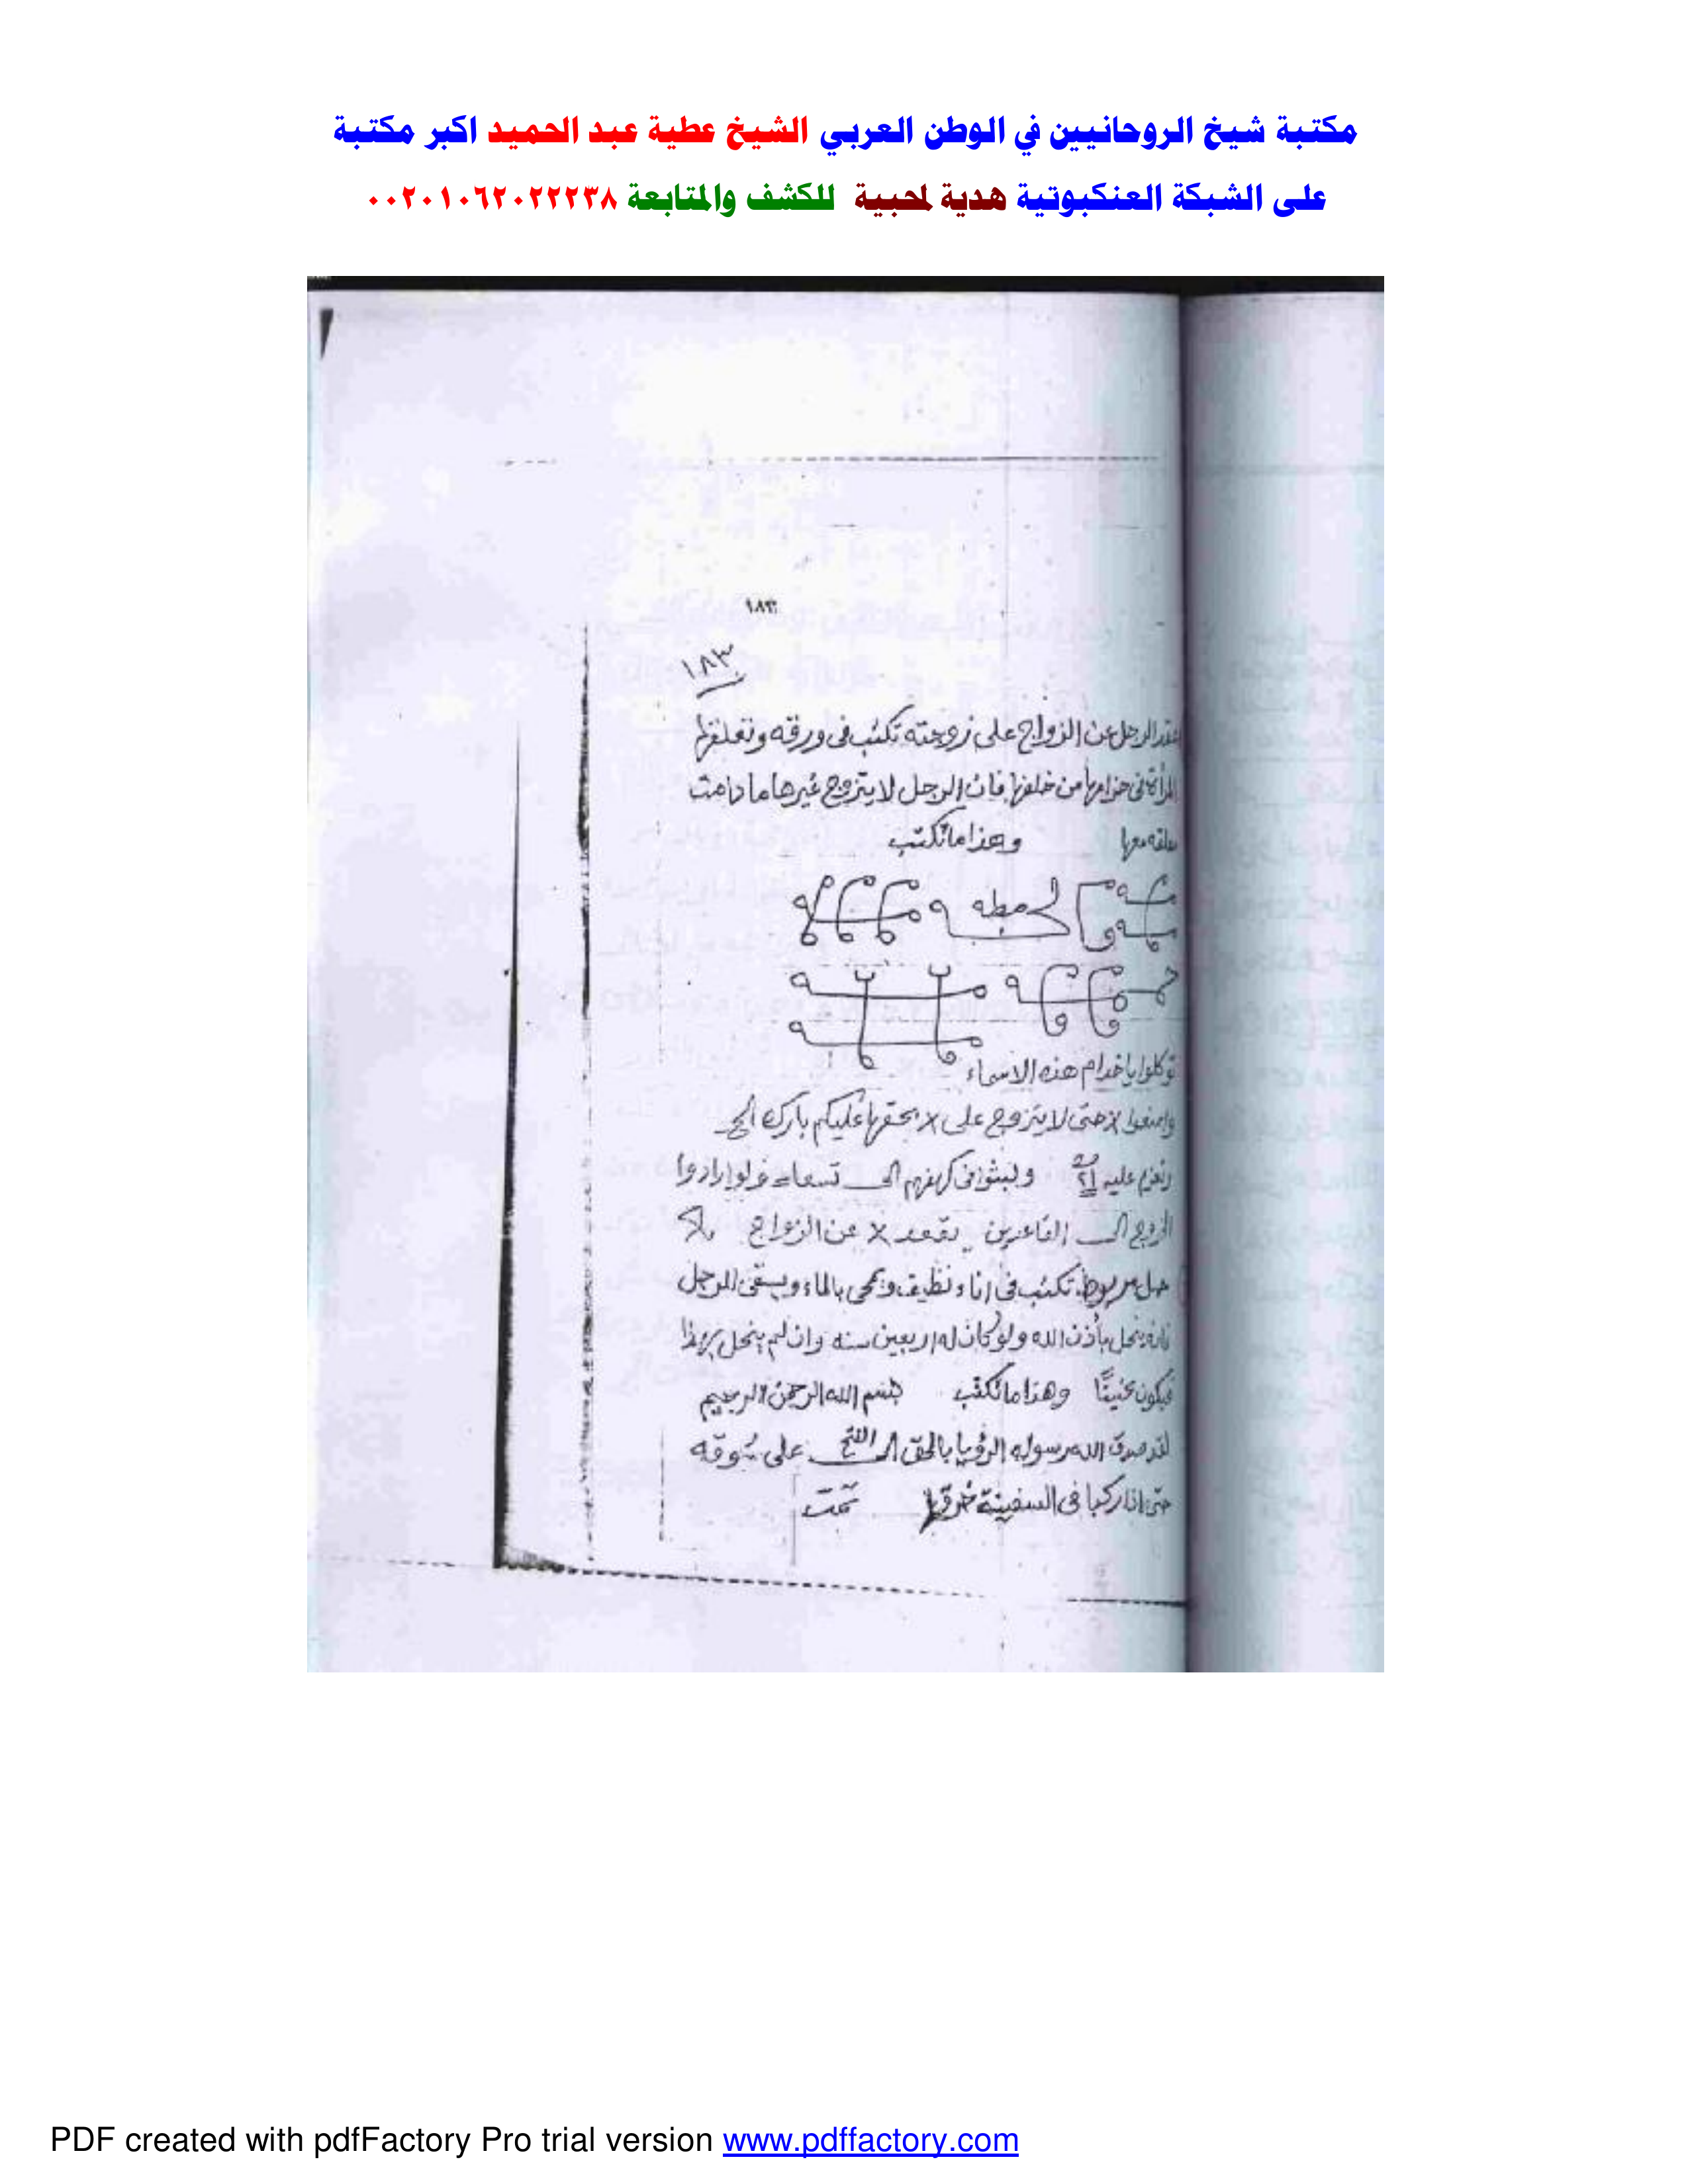 مكتبة شيخ الروحانيين في الوطن العربي الشيخ عطية عبد الحميد اكبر مكتبة
على الشبكة العنكبوتية هدية لمحبية للكشف والمتابعة ٠٠٢٠١٠٦٢٠٢٢٢٣٨
١٨٣
١٨٣
الرجل عن الزواج على زوجته تكتب فى ورقه وتعلقها
المرأة فى حزامها من خلفها فان الرجل لا يتزوج غيرها ما دامت
معلقه معها وهذا ما تكتب
توكلوا يا خدام هذه الاسماء
وامنعوا × حتى لا يتزوج على × بحقها عليكم بارك الخ
وتعزم عليه ٢١ ولبثوا فى كهفهم الى تسعا ولو ارادوا
الخروج الى القاعدين يقعد × عن الزواج
حل مربوط تكتب فى اناء نظيف ويمحى بالماء ويسقى للرجل
فانه ينحل بأذن الله ولو كان له اربعين سنه وان لم ينحل بهذا
فيكون عنينًا وهذا ما تكتب بسم الله الرحمن الرحيم
لقد صدق الله رسوله الرؤيا بالحق الى على سوقه
حتى اذا ركبا فى السفينة خرقها تمت
PDF created with pdfFactory Pro trial version www.pdffactory.com